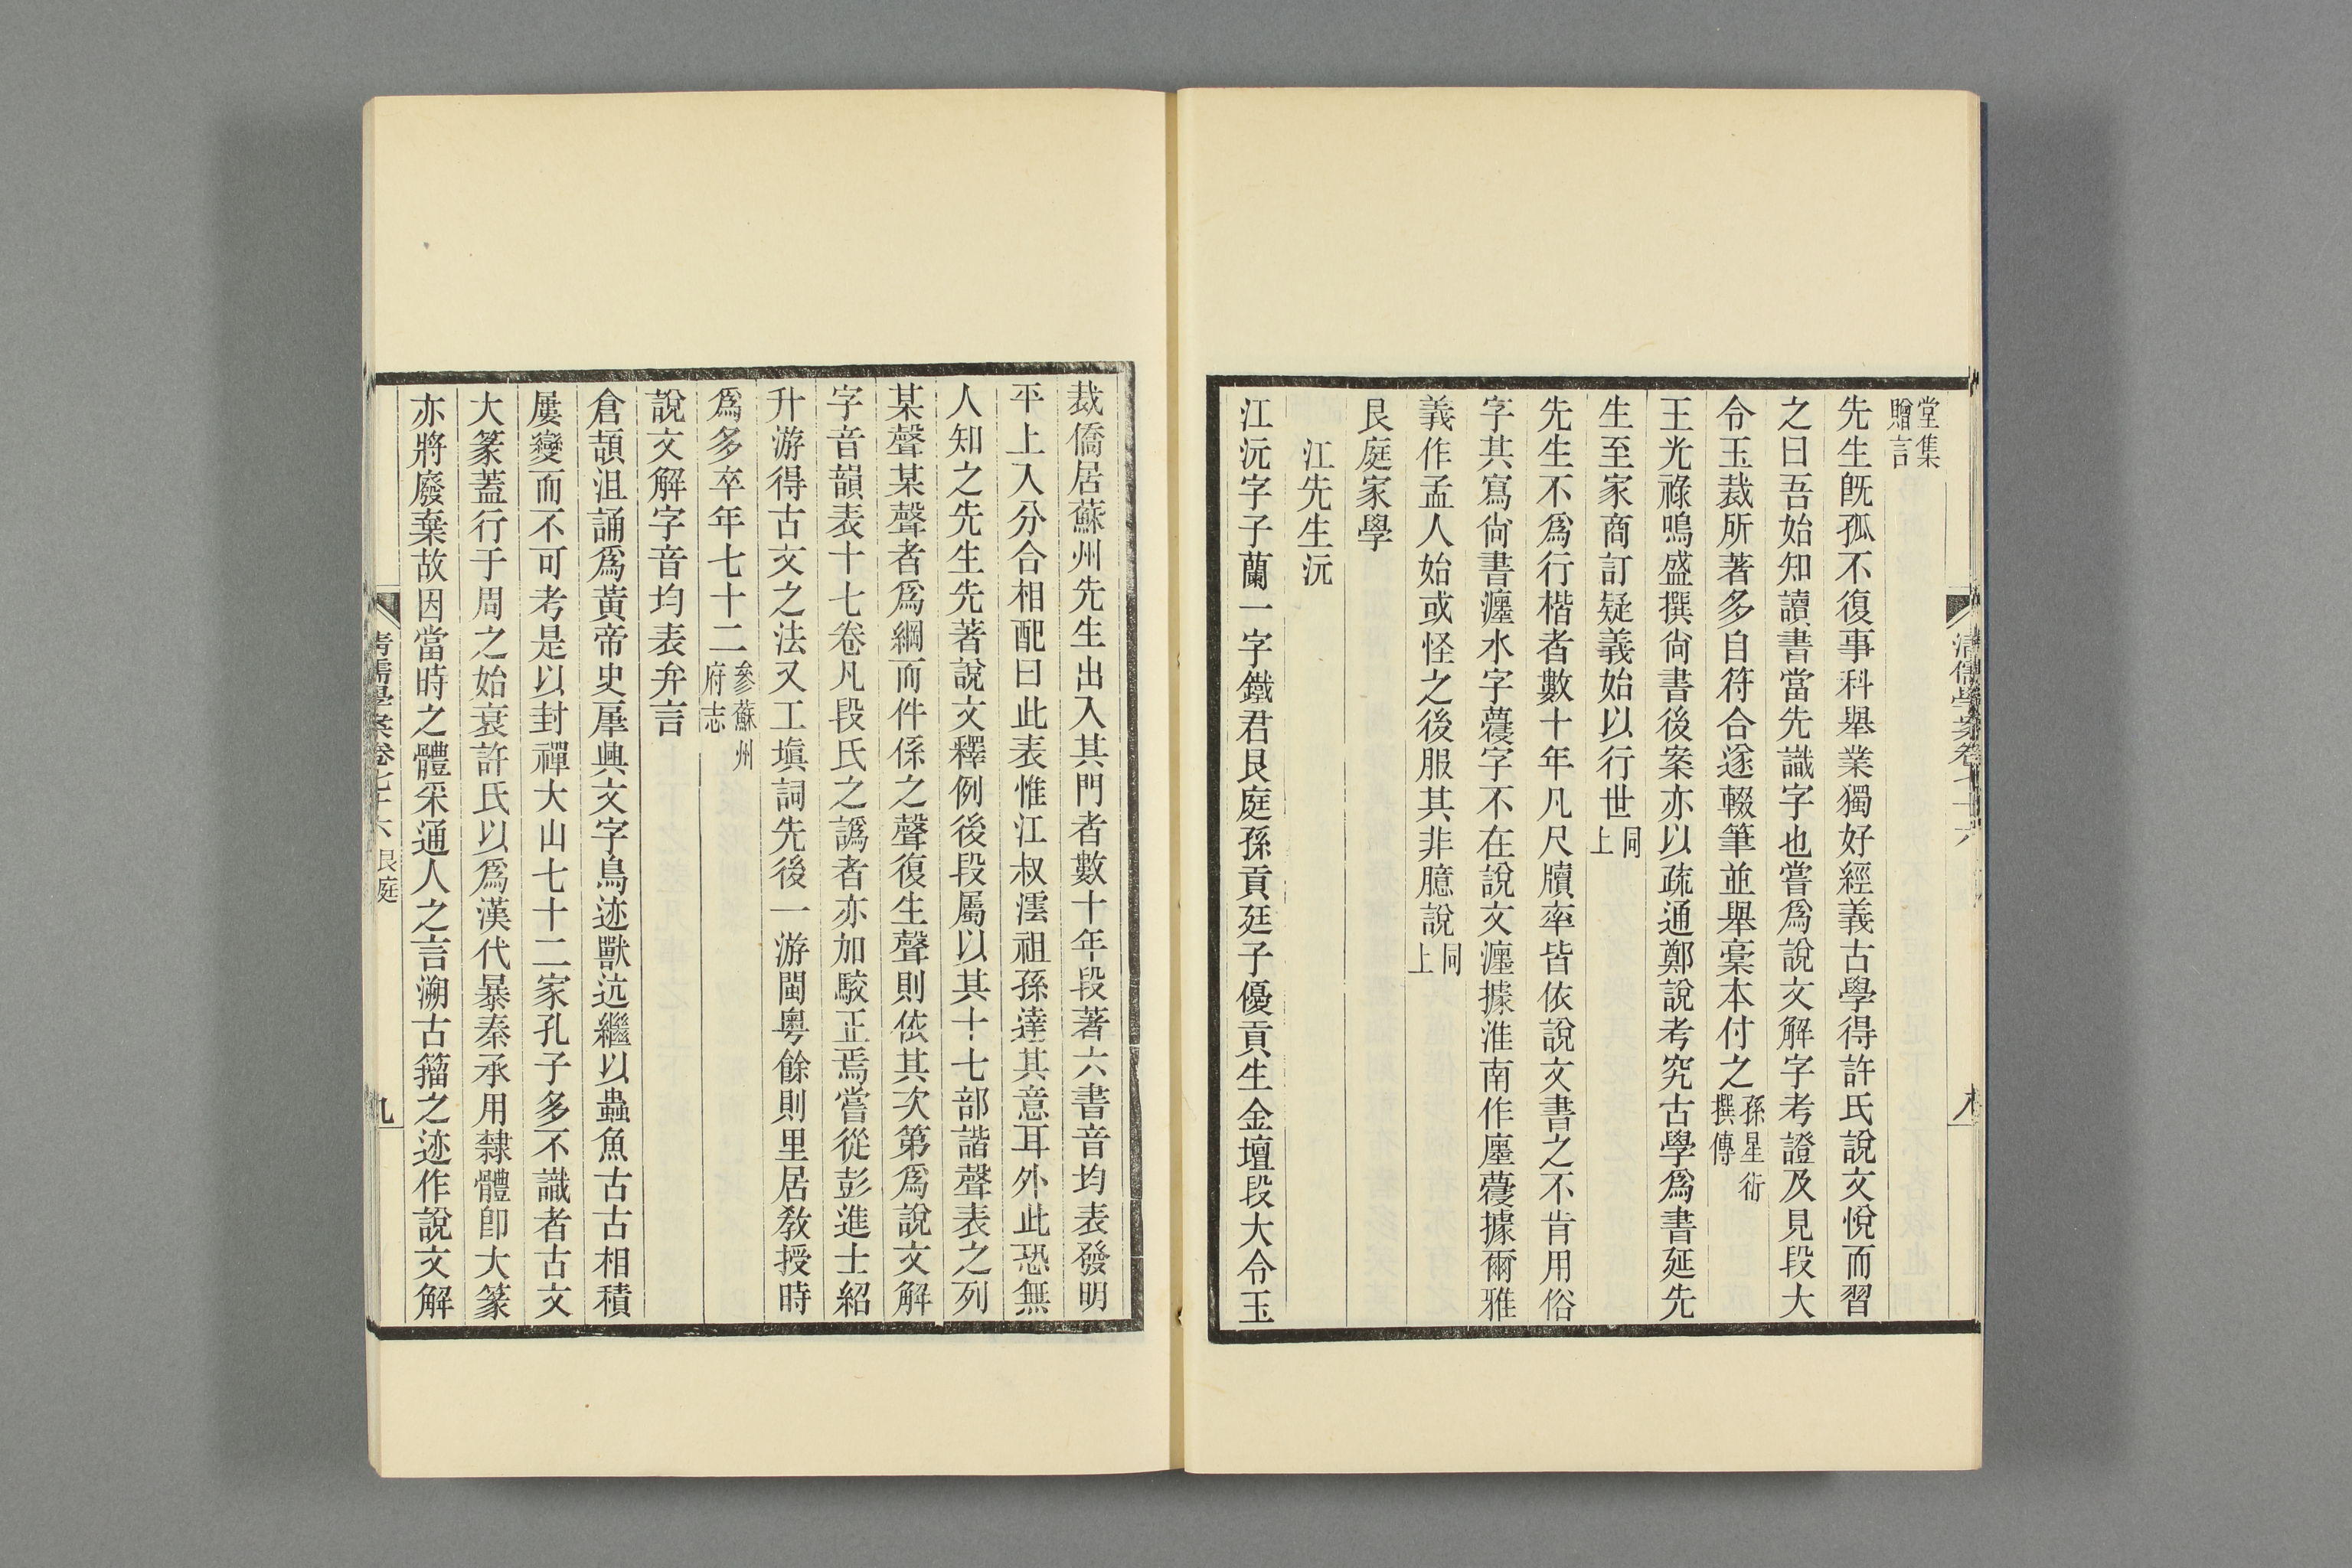 清儒學案卷七十六
八
堂集
贈言
先生旣孤不復事科舉業獨好經義古學得許氏說文悅而習
之曰吾始知讀書當先識字也嘗爲說文解字考證及見段大
令玉裁所著多自符合遂輟筆並舉稾本付之孫星衍撰傳
王光祿鳴盛撰尙書後案亦以疏通鄭說考究古學爲書延先
生至家商訂疑義始以行世同上
先生不爲行楷者數十年凡尺牘率皆依說文書之不肯用俗
字其寫尙書瀍水字薆字不在說文瀍據淮南作廛薆據爾雅
義作孟人始或怪之後服其非臆說同上
艮庭家學
江先生沅
江沅字子蘭一字鐵君艮庭孫貢廷子優貢生金壇段大令玉
裁僑居蘇州先生出入其門者數十年段著六書音均表發明
平上入分合相配曰此表惟江叔澐祖孫達其意耳外此恐無
人知之先生先著說文釋例後段屬以其十七部諧聲表之列
某聲某聲者爲綱而件係之聲復生聲則依其次第爲說文解
字音韻表十七卷凡段氏之譌者亦加駮正焉嘗從彭進士紹
升游得古文之法又工塡詞先後一游閩粵餘則里居敎授時
爲多卒年七十二參蘇州府志
說文解字音均表弁言
倉頡沮誦爲黃帝史肇興文字鳥迹獸迒繼以蟲魚古古相積
屢變而不可考是以封禪大山七十二家孔子多不識者古文
大篆蓋行于周之始衰許氏以爲漢代暴秦承用隸體卽大篆
亦將廢棄故因當時之體采通人之言溯古籀之迹作說文解
清儒學案卷七十六 艮庭
九